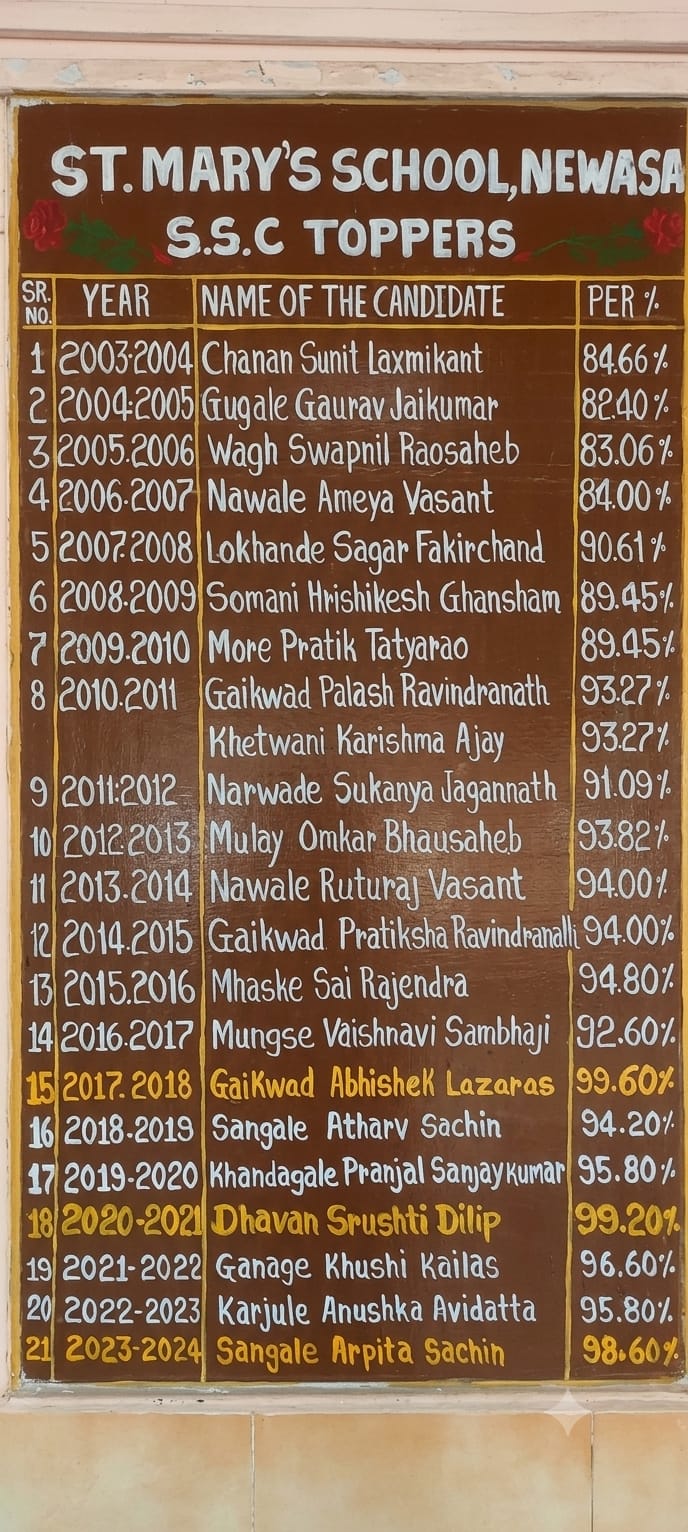 ST. MARY'S SCHOOL, NEWASA
S.S.C TOPPERS
SR. NO. YEAR NAME OF THE CANDIDATE PER %
1 2003-2004 Chanan Sunit Laxmikant 84.66%
2 2004-2005 Gugale Gaurav Jaikumar 82.40%
3 2005.2006 Wagh Swapnil Raosaheb 83.06%
4 2006-2007 Nawale Ameya Vasant 84.00%
5 2007.2008 Lokhande Sagar Fakirchand 90.61%
6 2008-2009 Somani Hrishikesh Ghansham 89.45%
7 2009.2010 More Pratik Tatyarao 89.45%
8 2010.2011 Gaikwad Palash Ravindranath 93.27%
Khetwani Karishma Ajay 93.27%
9 2011-2012 Narwade Sukanya Jagannath 91.09%
10 2012.2013 Mulay Omkar Bhausaheb 93.82%
11 2013.2014 Nawale Ruturaj Vasant 94.00%
12 2014.2015 Gaikwad Pratiksha Ravindranath 94.00%
13 2015.2016 Mhaske Sai Rajendra 94.80%
14 2016.2017 Mungse Vaishnavi Sambhaji 92.60%
15 2017.2018 Gaikwad Abhishek Lazaras 99.60%
16 2018-2019 Sangale Atharv Sachin 94.20%
17 2019-2020 Khandagale Pranjal Sanjaykumar 95.80%
18 2020-2021 Dhavan Srushti Dilip 99.20%
19 2021-2022 Ganage Khushi Kailas 96.60%
20 2022-2023 Karjule Anushka Avidatta 95.80%
21 2023-2024 Sangale Arpita Sachin 98.60%